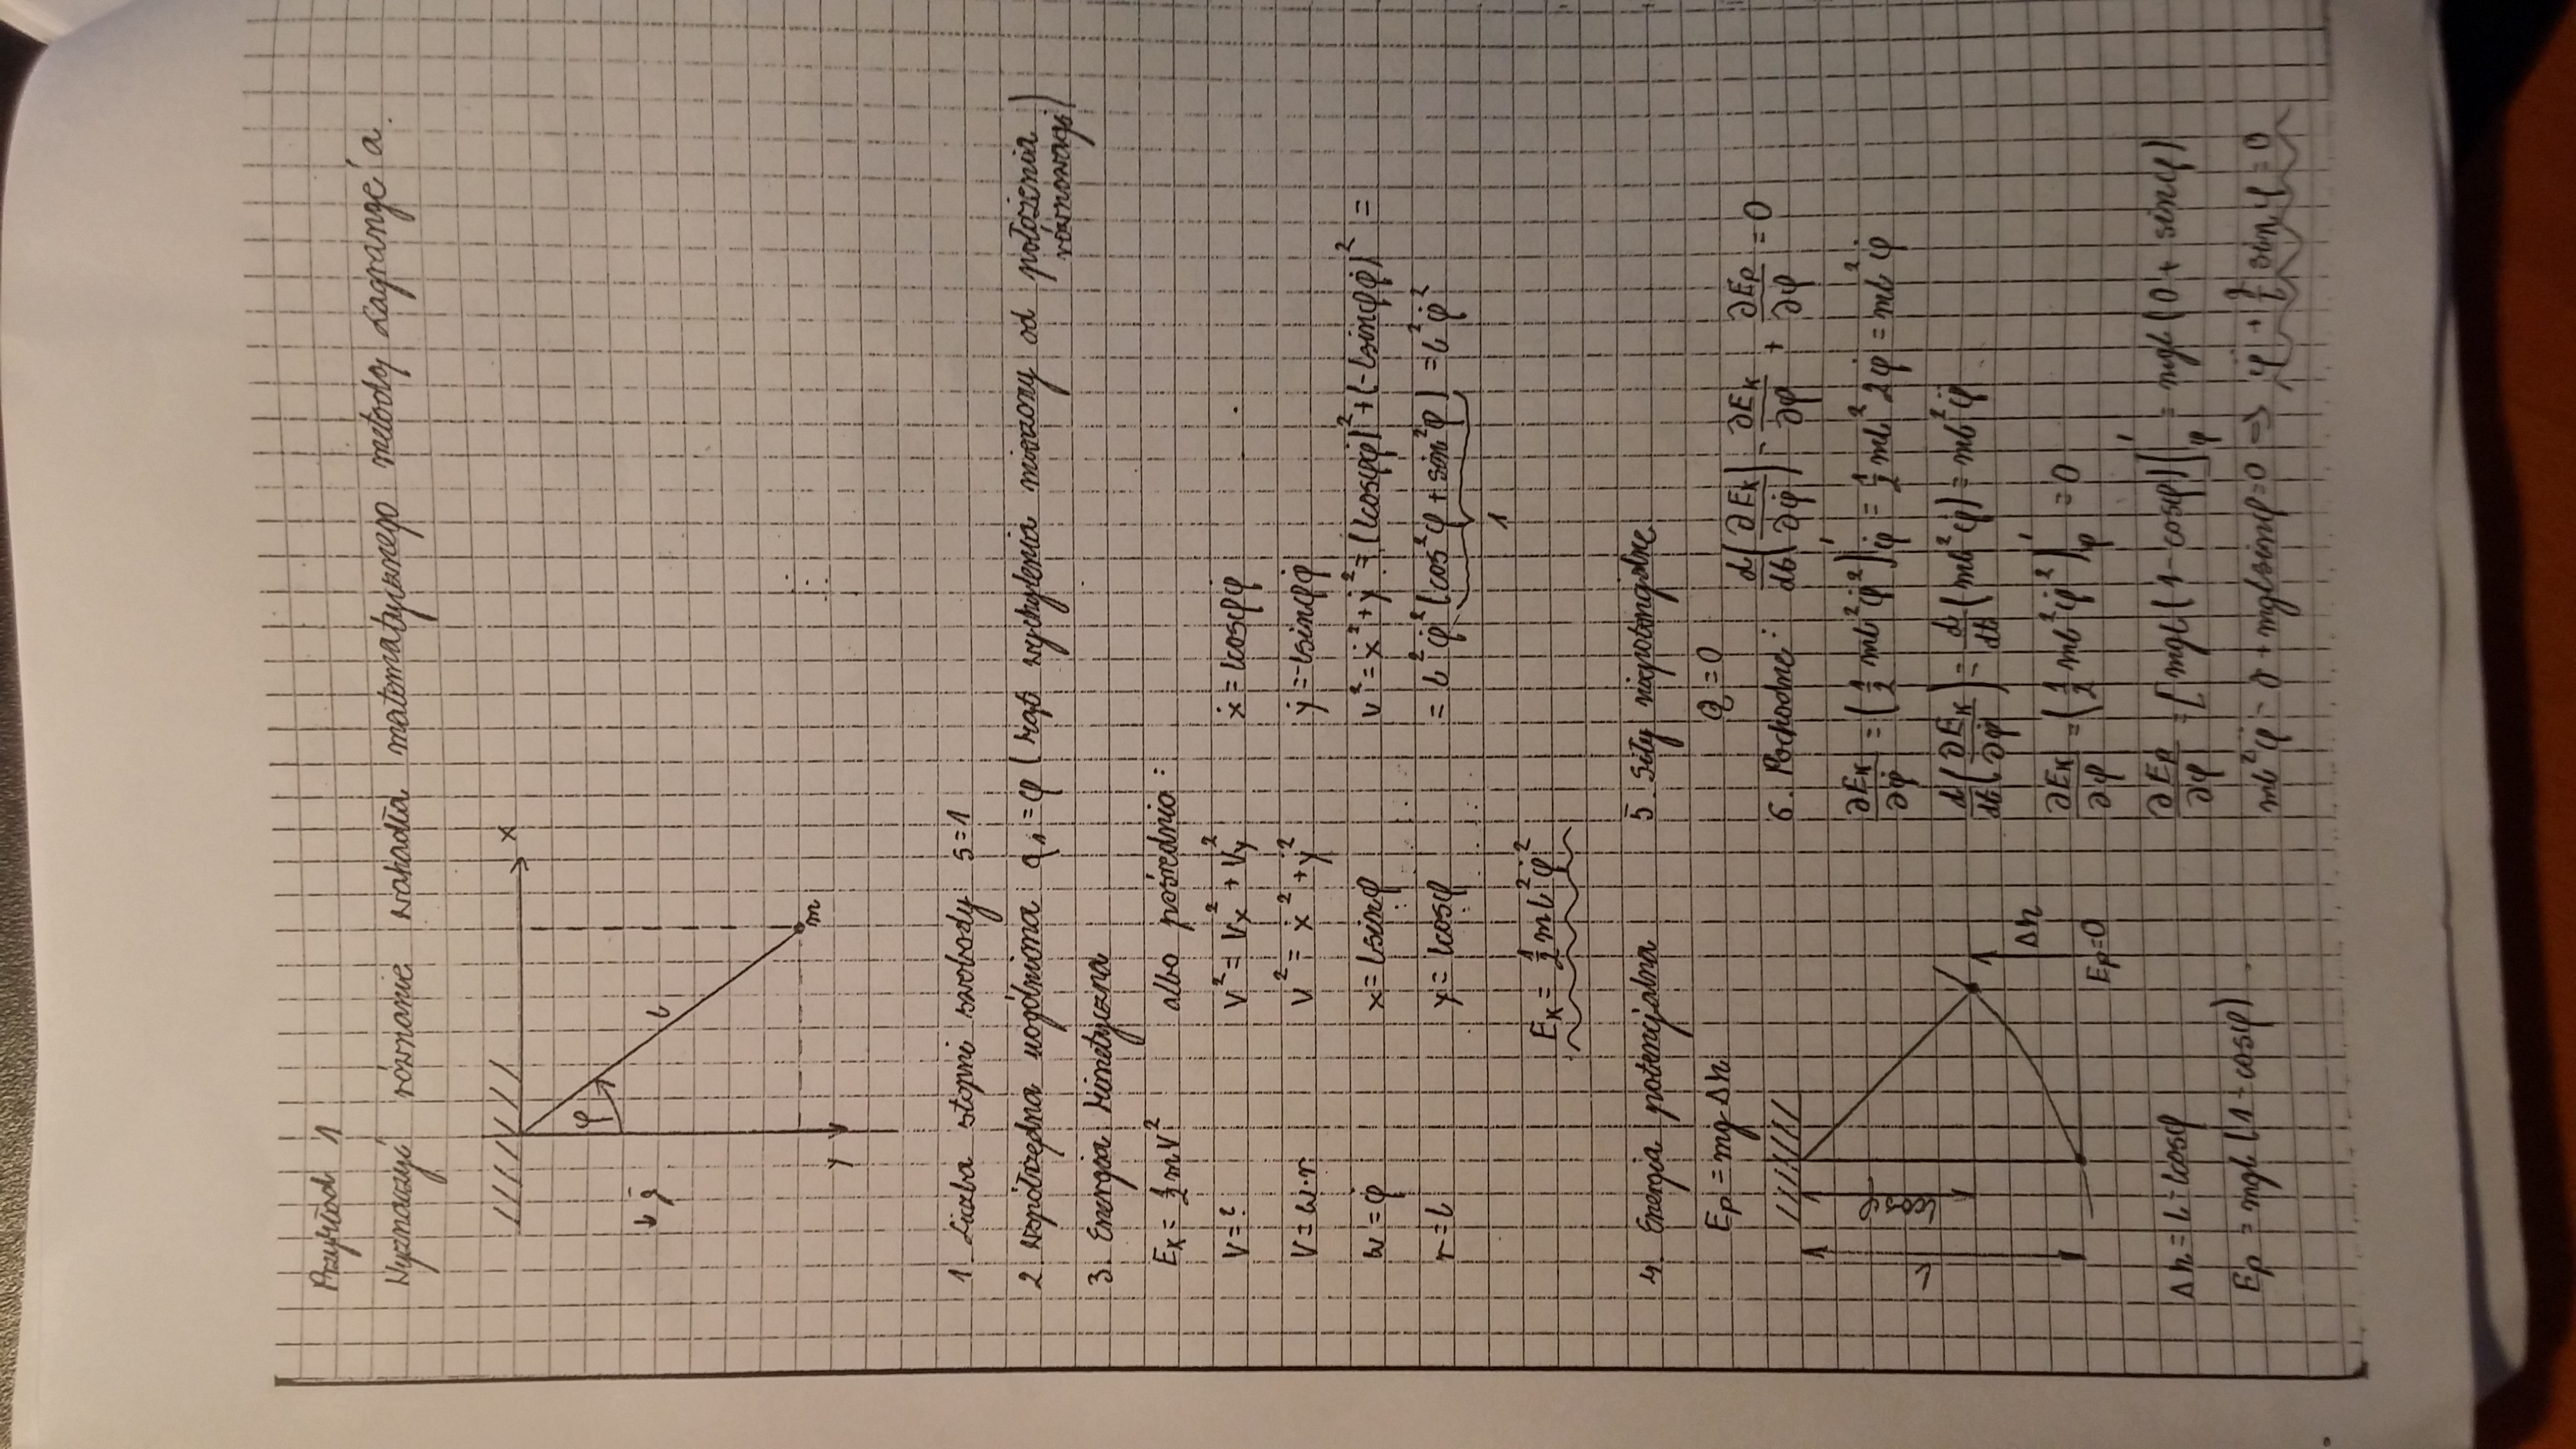 Przykład 1
Wyznaczyć równanie wahadła matematycznego metodą Lagrange'a.
x
φ
l
m
g
y
1. Liczba stopni swobody s=1
2. współrzędna uogólniona q₁=φ (kąt wychylenia mierzony od położenia równowagi)
3. Energia kinetyczna
Eₖ = ½ mV²
V=?
V=ω·r
ω=φ̇
r=l
albo pośrednio:
V² = Vₓ² + Vᵧ²
V² = ẋ² + ẏ²
x=lsinφ
y=lcosφ
ẋ=lcosφφ̇
ẏ=-lsinφφ̇
V²=ẋ²+ẏ²=(lcosφφ̇)²+(-lsinφφ̇)²=
=l²φ̇²(cos²φ+sin²φ)=l²φ̇²
1
Eₖ=½ml²φ̇²
4. Energia potencjalna
Eₚ=mg·Δh
l
Δh
Eₚ=0
Δh=l-lcosφ
Eₚ=mgl(1-cosφ)
5. Siły niepotencjalne
Q=0
6. Pochodne: d/dt(∂Eₖ/∂φ̇)-∂Eₖ/∂φ+∂Eₚ/∂φ=0
∂Eₖ/∂φ̇=(½ml²φ̇²)'φ̇=½ml²2φ̇=ml²φ̇
d/dt(∂Eₖ/∂φ̇)=d/dt(ml²φ̇)=ml²φ̈
∂Eₖ/∂φ=(½ml²φ̇²)'φ=0
∂Eₚ/∂φ=[mgl(1-cosφ)]'φ=mgl(0+sinφ)
ml²φ̈-0+mglsinφ=0 => φ̈+g/l sinφ=0